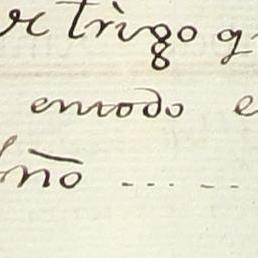 de trigo q
en todo e
ño